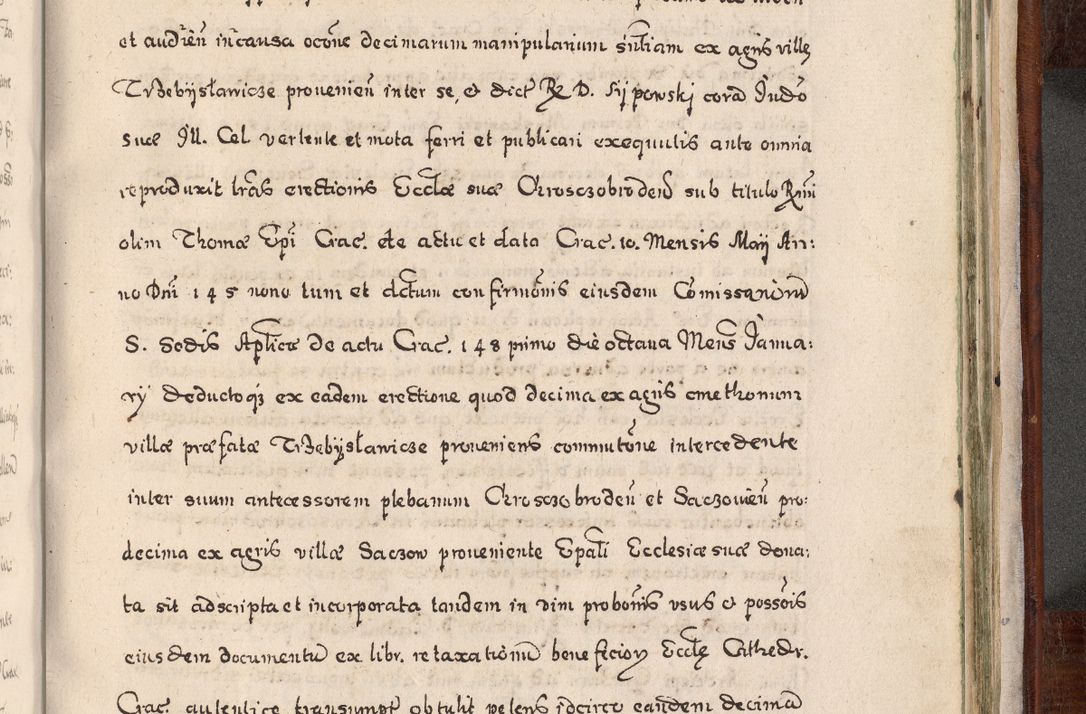 et audien̄ in causa oc̄one decimarum manipularium sn̄tiam ex agris villę
Trzebysławicze prouenien̄ inter se, et dict R D. Kijpowski corā Judō
suæ Jll. Cel vertente et mota ferri et publicari exequutis ante omnia
reproduxit lrās erectionis Ecclæ suæ Chrosczobroden̄ sub titulo Rmi
olim Thomæ Epi Crac. de actu et data Crac. 10. Mensis Maij An:
no Dni 145 nono tum et dictum confirmōnis eiusdem Comissariorū
S. Sedis Aplicæ de actu Crac. 148 primo die octaua Mens Janua:
rÿ deductoq; ex eadem erectione quod decima ex agris cmethonum
villæ præfatæ Trzebysławicze proueniens commutōne intercedente
inter suum antecessorem plebanum Chrosczobroden̄ et Saczouien̄ pro:
decima ex agris villæ Saczow proueniente Epali Ecclesiæ suæ dona:
ta sit adscripta et incorporata tandem in vim probōnis vsus et possōis
eiusdem documentū ex libr. retaxationū beneficiorų Ecclę Cathedr.
Crac. autentice transumpt obtulit petens idcirco eandem decimā